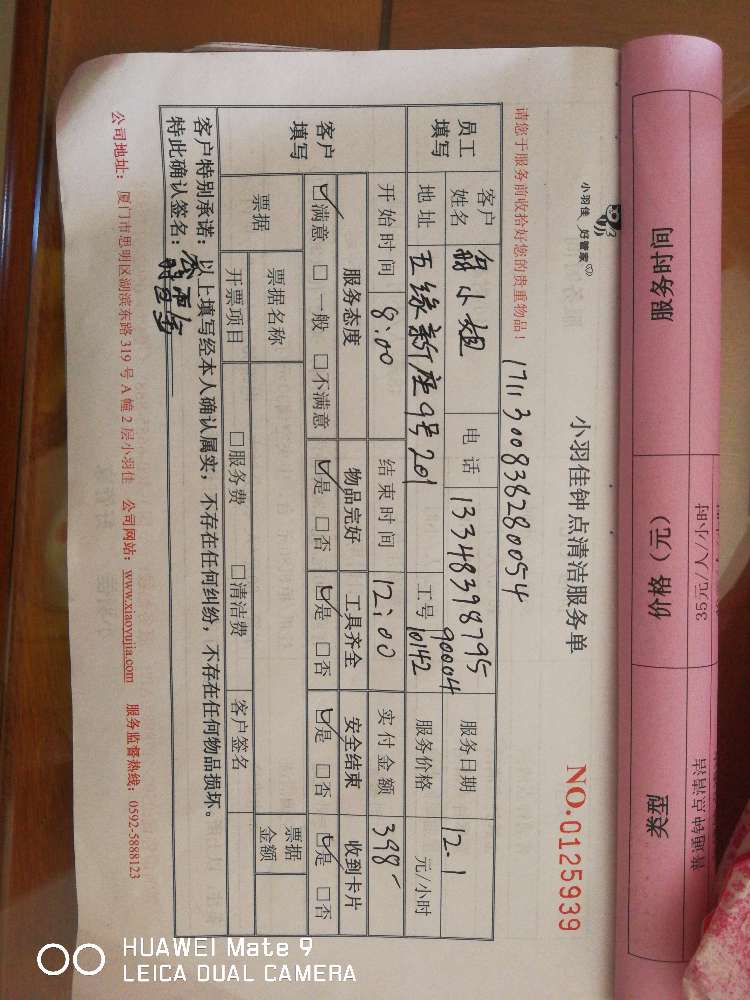 服务时间 价格（元） 类型
35元/人/小时 普通钟点清洁
小羽佳 好管家
小羽佳钟点清洁服务单 NO.0125939
请您于服务前收拾好您的贵重物品！ 1711300838280054
员工填写 客户姓名 小姐 电话 13348398795 服务日期 12-1
地址 五缘新座9号201 工号 90004 10142 服务价格 元/小时
客户填写 开始时间 8:00 结束时间 12:00 实付金额 398-
服务态度 物品完好 工具齐全 安全结束 收到卡片
☑满意 □一般 □不满意 ☑是 □否 ☑是 □否 ☑是 □否 ☑是 □否
票据 票据名称 票据金额
开票项目 □服务费 □清洁费 客户签名
客户特别承诺：以上填写经本人确认属实，不存在任何纠纷，不存在任何物品损坏。
特此确认签名：
公司地址：厦门市思明区湖滨东路319号A幢2层小羽佳 公司网站：www.xiaoyujia.com 服务监督热线：0592-5888123
HUAWEI Mate 9
LEICA DUAL CAMERA